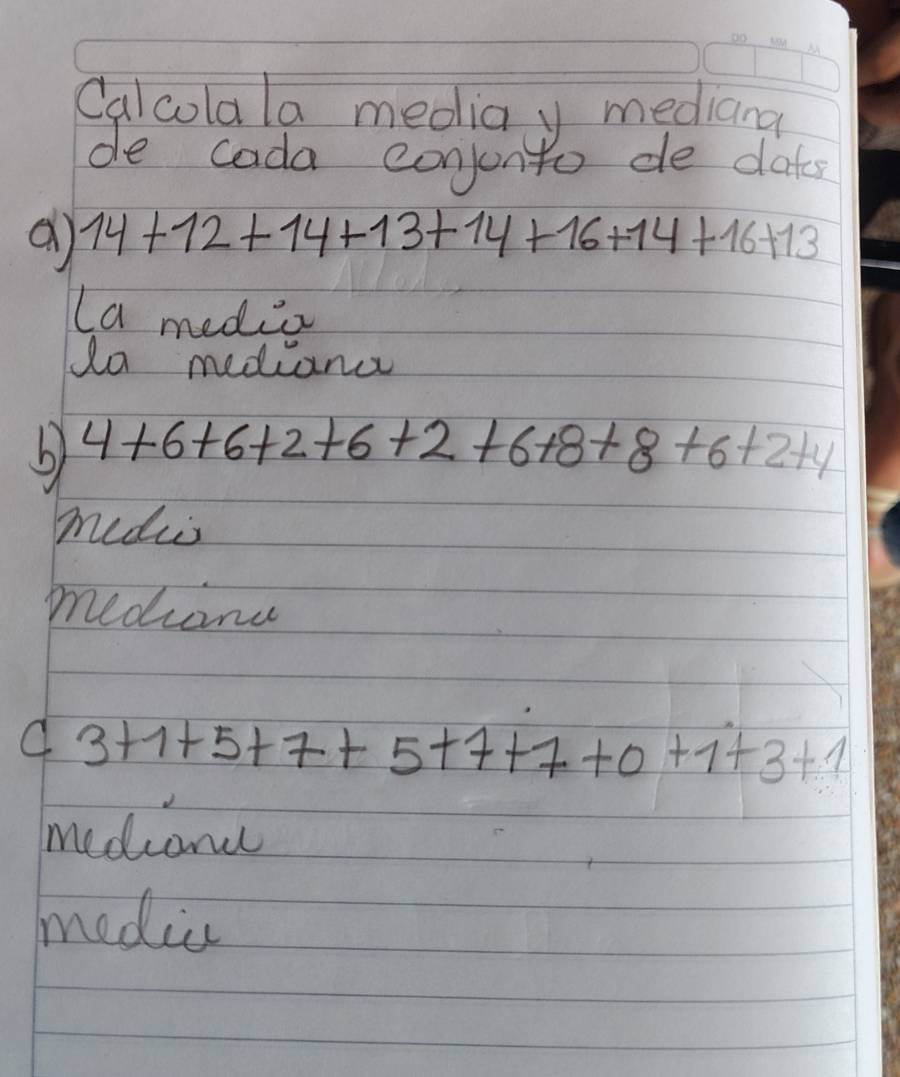 DD MM AA
Calcula la media y mediana
de cada conjunto de datos
a) 14+12+14+13+14+16+14+16+13
La media
La mediana
b) 4+6+6+2+6+2+6+8+8+6+2+4
media
mediana
C 3+1+5+7+5+7+7+0+1+3+1
mediana
media